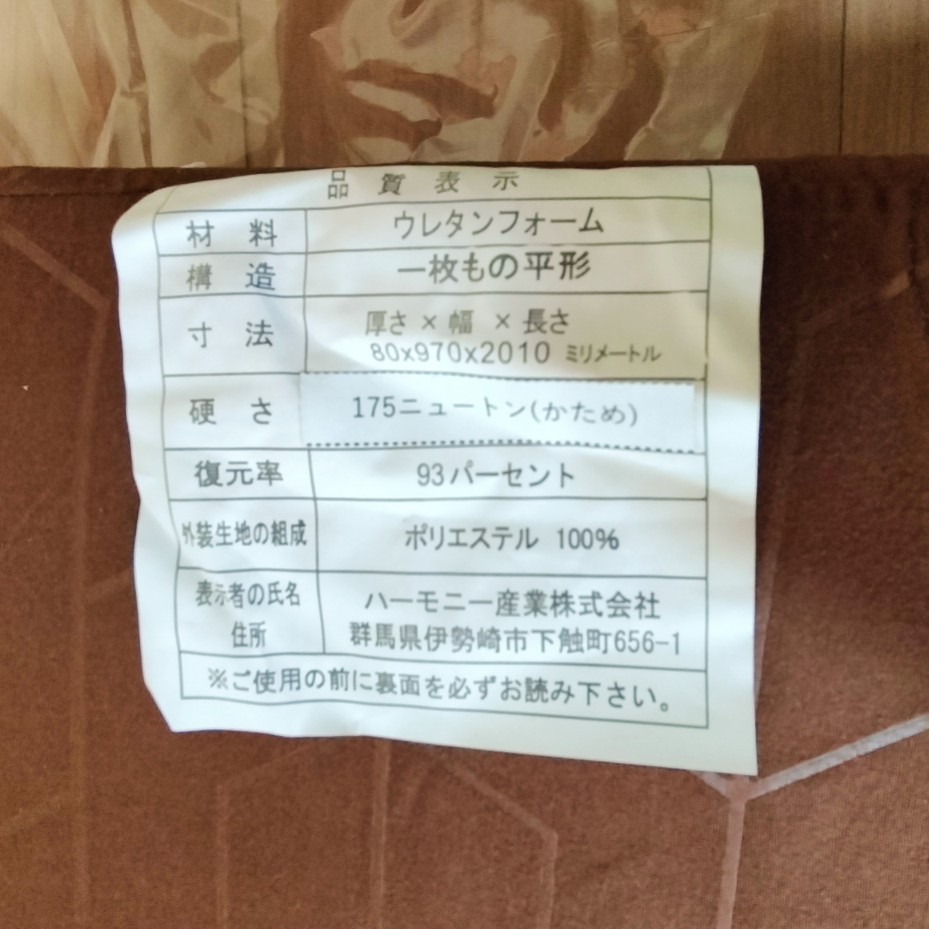 品質表示
材料 ウレタンフォーム
構造 一枚もの平形
寸法 厚さ×幅×長さ
80x970x2010 ミリメートル
硬さ 175ニュートン(かため)
復元率 93パーセント
外装生地の組成 ポリエステル 100%
表示者の氏名 ハーモニー産業株式会社
住所 群馬県伊勢崎市下触町656-1
※ご使用の前に裏面を必ずお読み下さい。